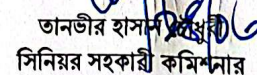 তানভীর হাসান
সিনিয়র সহকারী কমিশনার